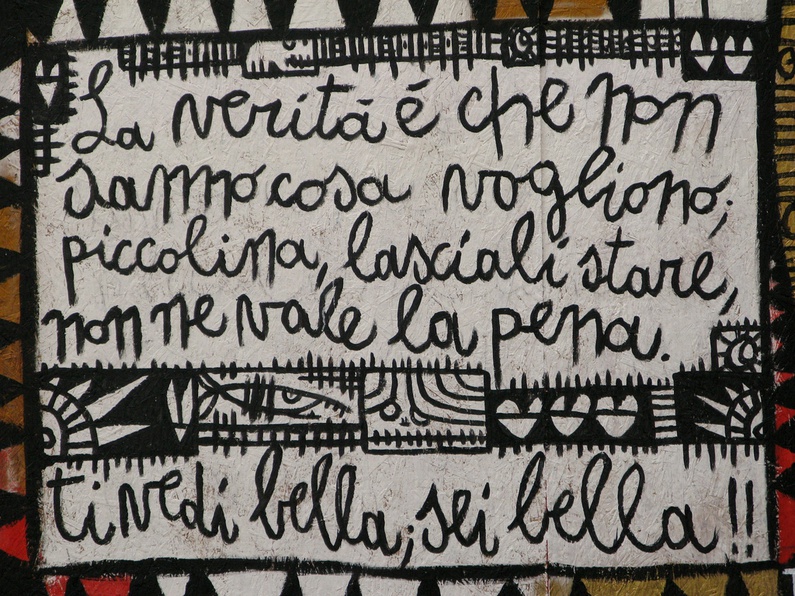 La verità é che non
sanno cosa vogliono;
piccolina, lasciali stare,
non ne vale la pena.
ti vedi bella; sei bella!!